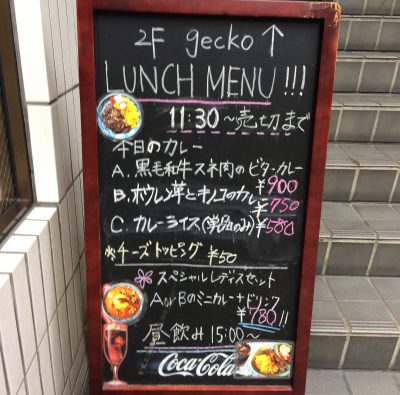 2F gecko ↑
LUNCH MENU!!!
11:30〜売切まで
本日のカレー
A. 黒毛和牛スネ肉のビターカレー
¥900
B. ホウレン草とキノコのカレー
¥750
C. カレーライス(単品のみ) ¥500
※チーズトッピング ¥50
スペシャルレディスセット
A or Bのミニカレー+ドリンク
¥780!!
昼飲み 15:00〜
Coca-Cola